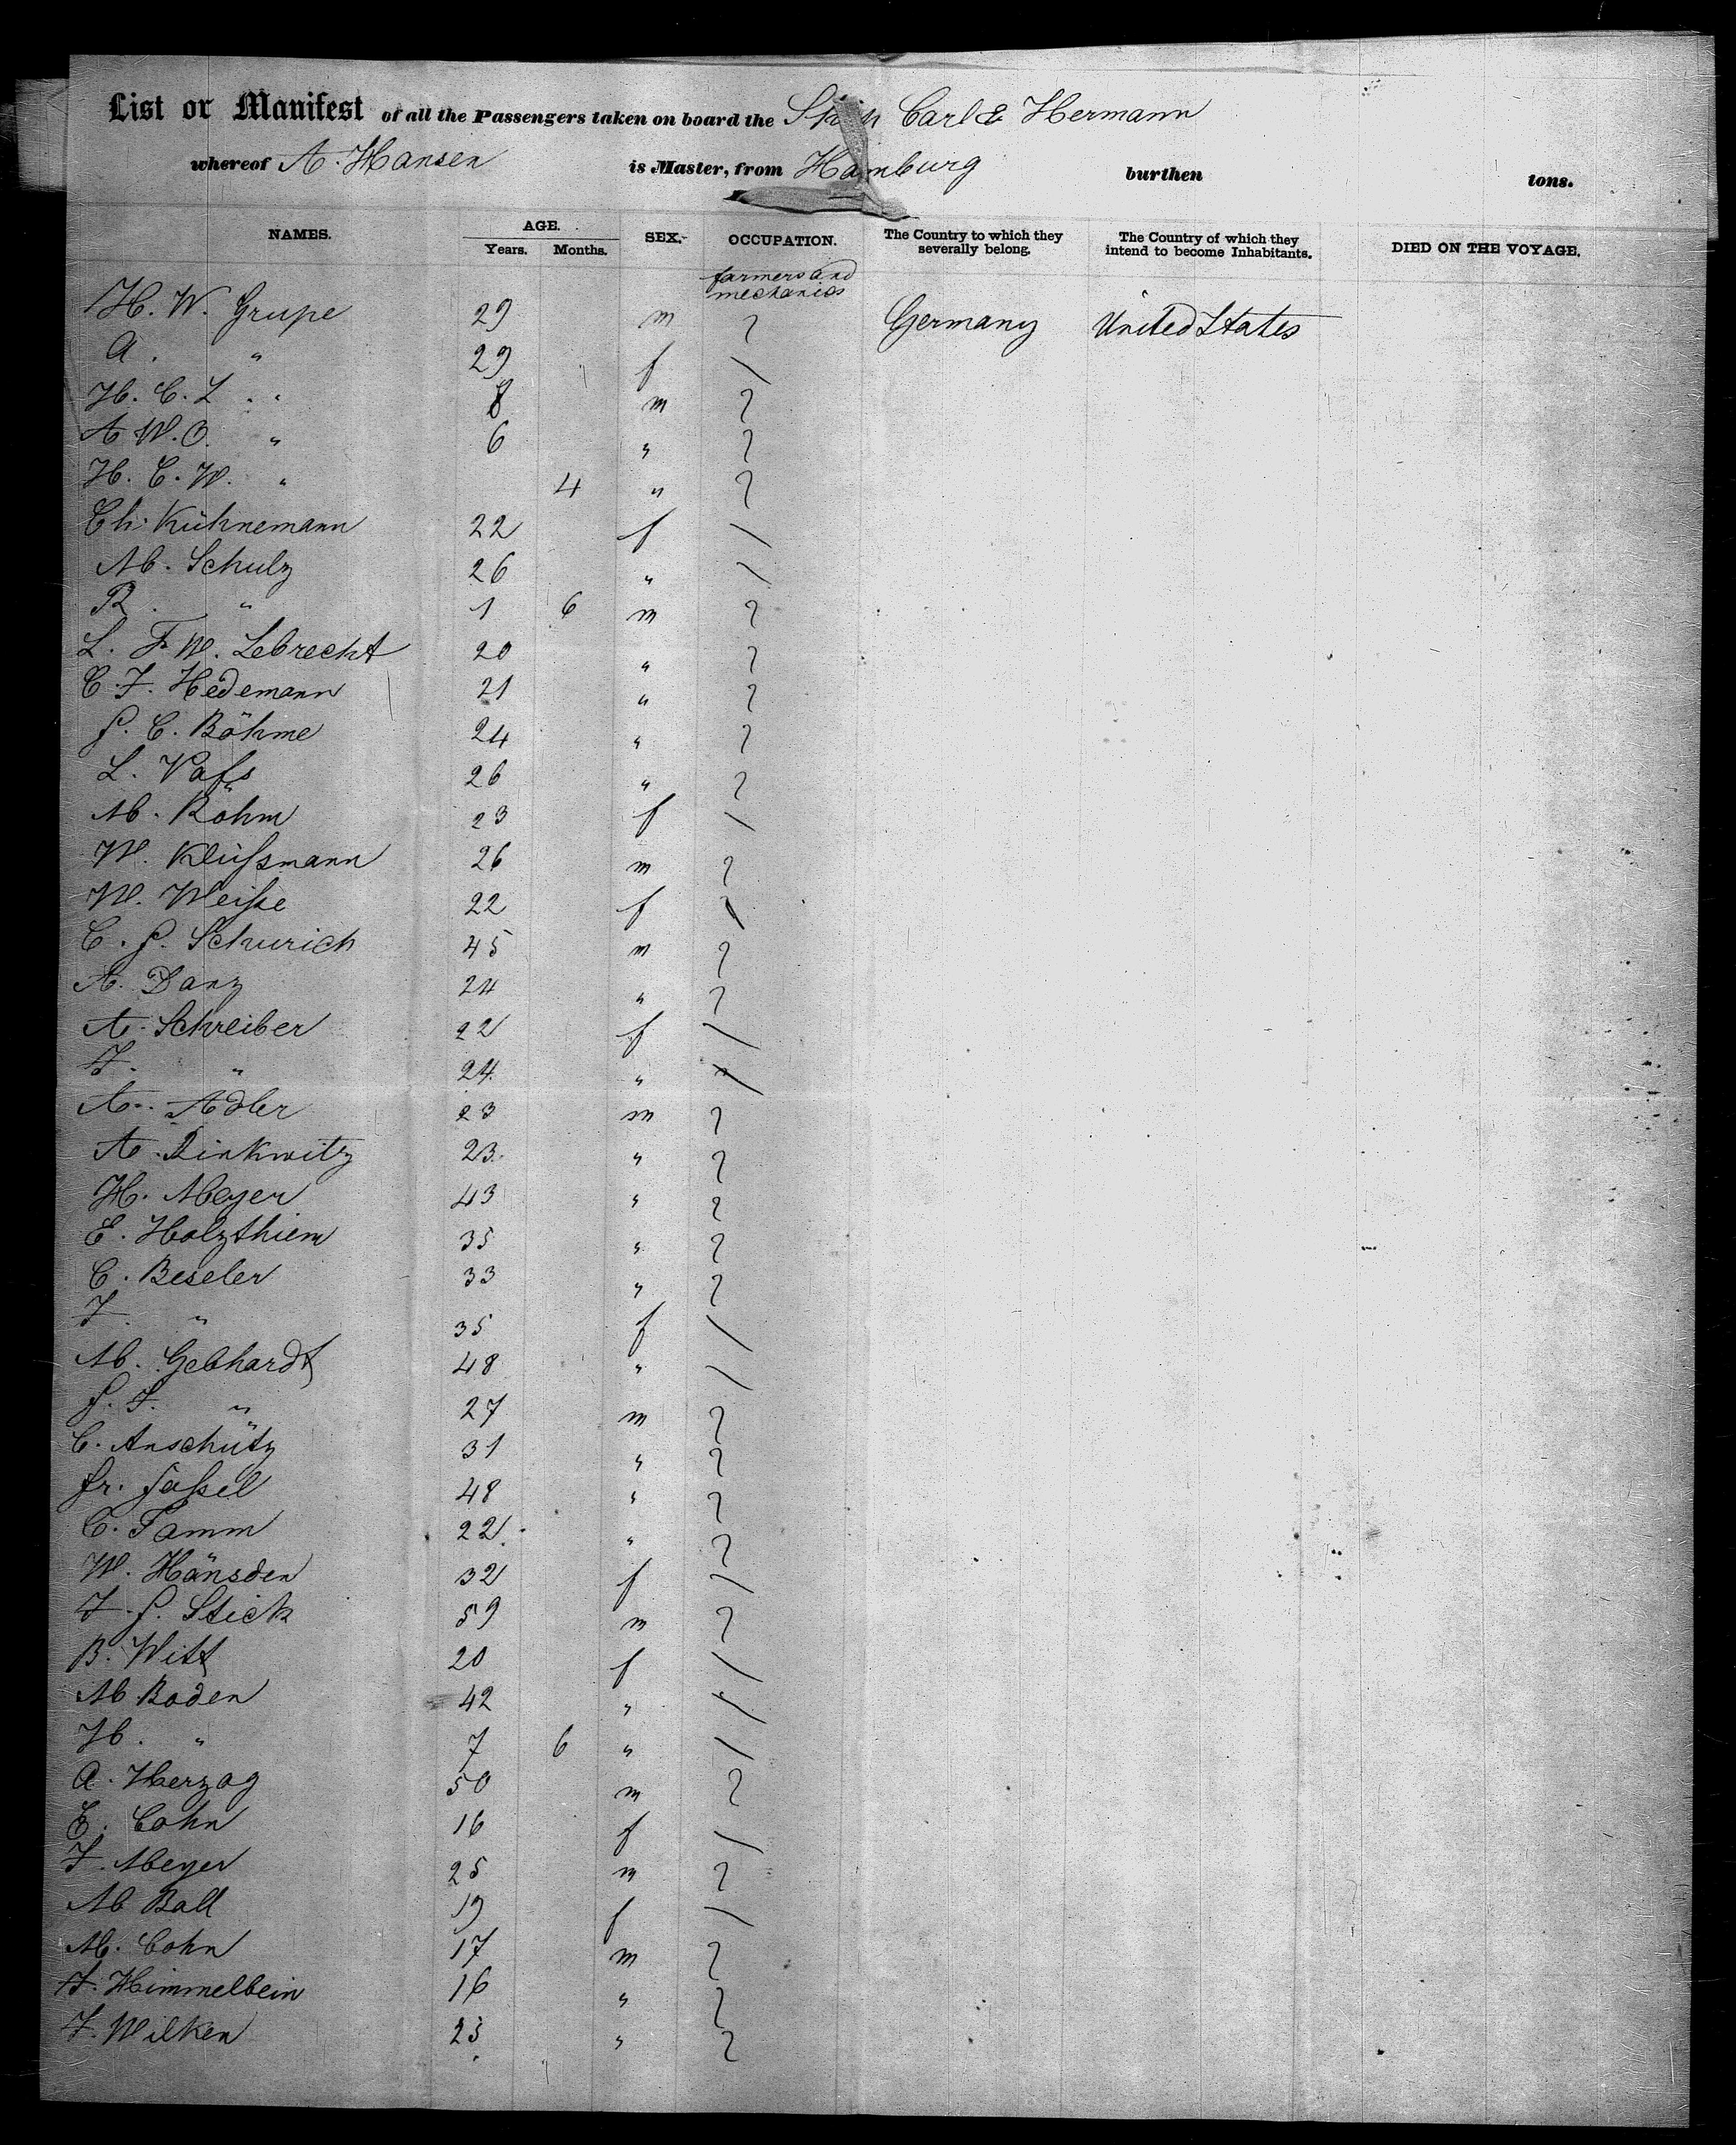 List or Manifest of all the Passengers taken on board the Ship Carl & Hermann
whereof A. Hansen is Master, from Hamburg burthen tons.
NAMES. AGE. SEX. OCCUPATION. The Country to which they severally belong. The Country of which they intend to become Inhabitants. DIED ON THE VOYAGE.
Years. Months.
farmers and
mechanics
H. W. Grupe 29 m Germany United States
A. " 29 f
H. C. L. " 8 m
A W. O. " 6 "
H. C. W. " 4 "
Ch. Kühnemann 22 f
M. Schulz 26 "
R. " 1 6 m
L. F. W. Lebrecht 20 "
C. F. Hedemann 21 "
J. C. Böhme 24 "
L. Vaſs 26 "
M. Röhm 23 f
W. Klüſsmann 26 m
W. Weiſse 22 f
C. J. Schurich 45 m
A. Danz 24 "
A. Schreiber 22 f
F. " 24 "
A. Adler 23 m
A. Rinkwitz 23 "
H. Meyer 43 "
E. Holzthiem 35 "
C. Beseler 33 "
F. " 35 f
M. Gebhardt 48 "
J. F. " 27 m
C. Anschütz 31 "
Fr. Jaſsel 48 "
C. Tamm 22 "
W. Hänsden 32 f
F. J. Stick 59 m
B. Witt 20 f
M Boden 42 "
H. " 7 6 "
A. Herzog 50 m
E. Cohn 16 f
F. Meyer 25 m
M Ball 19 f
M. Cohn 17 m
F. Himmelbein 16 "
F. Wilken 25 "